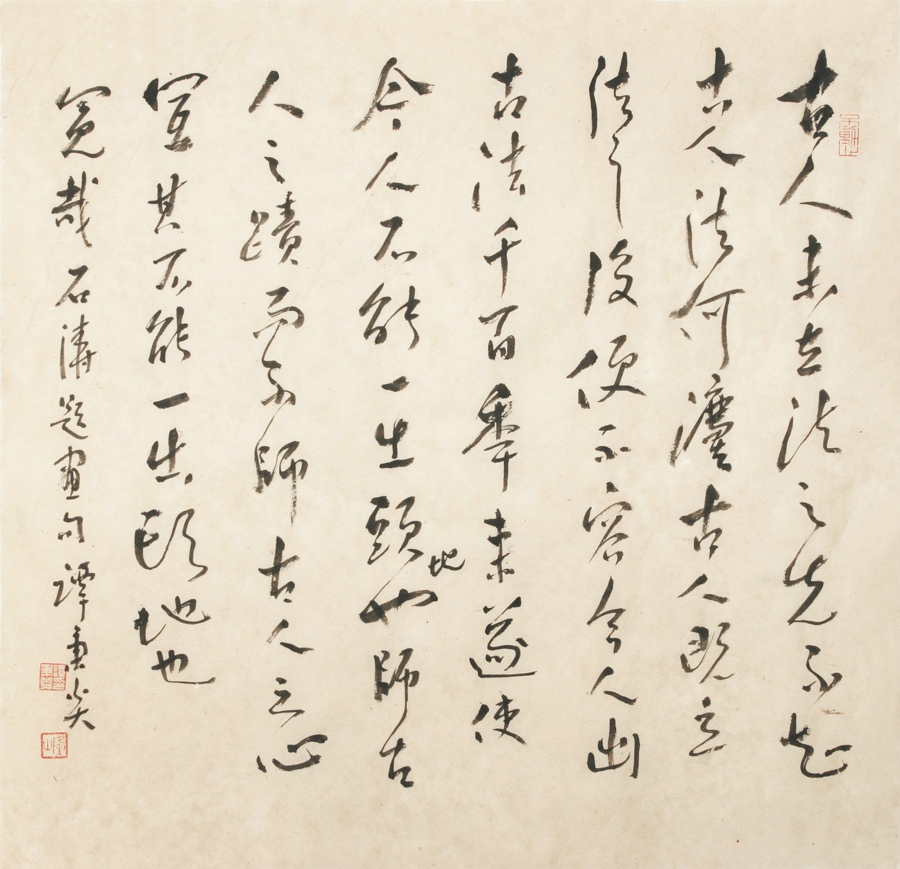 古人未立法之先不知
古人法何灋古人既立
法之後便不容今人出
古法千百秊来遂使
今人不能一出頭地也師古
人之蹟而不師古人之心
宜其不能一出頭地也
冤哉石濤題畫句譚秉炎